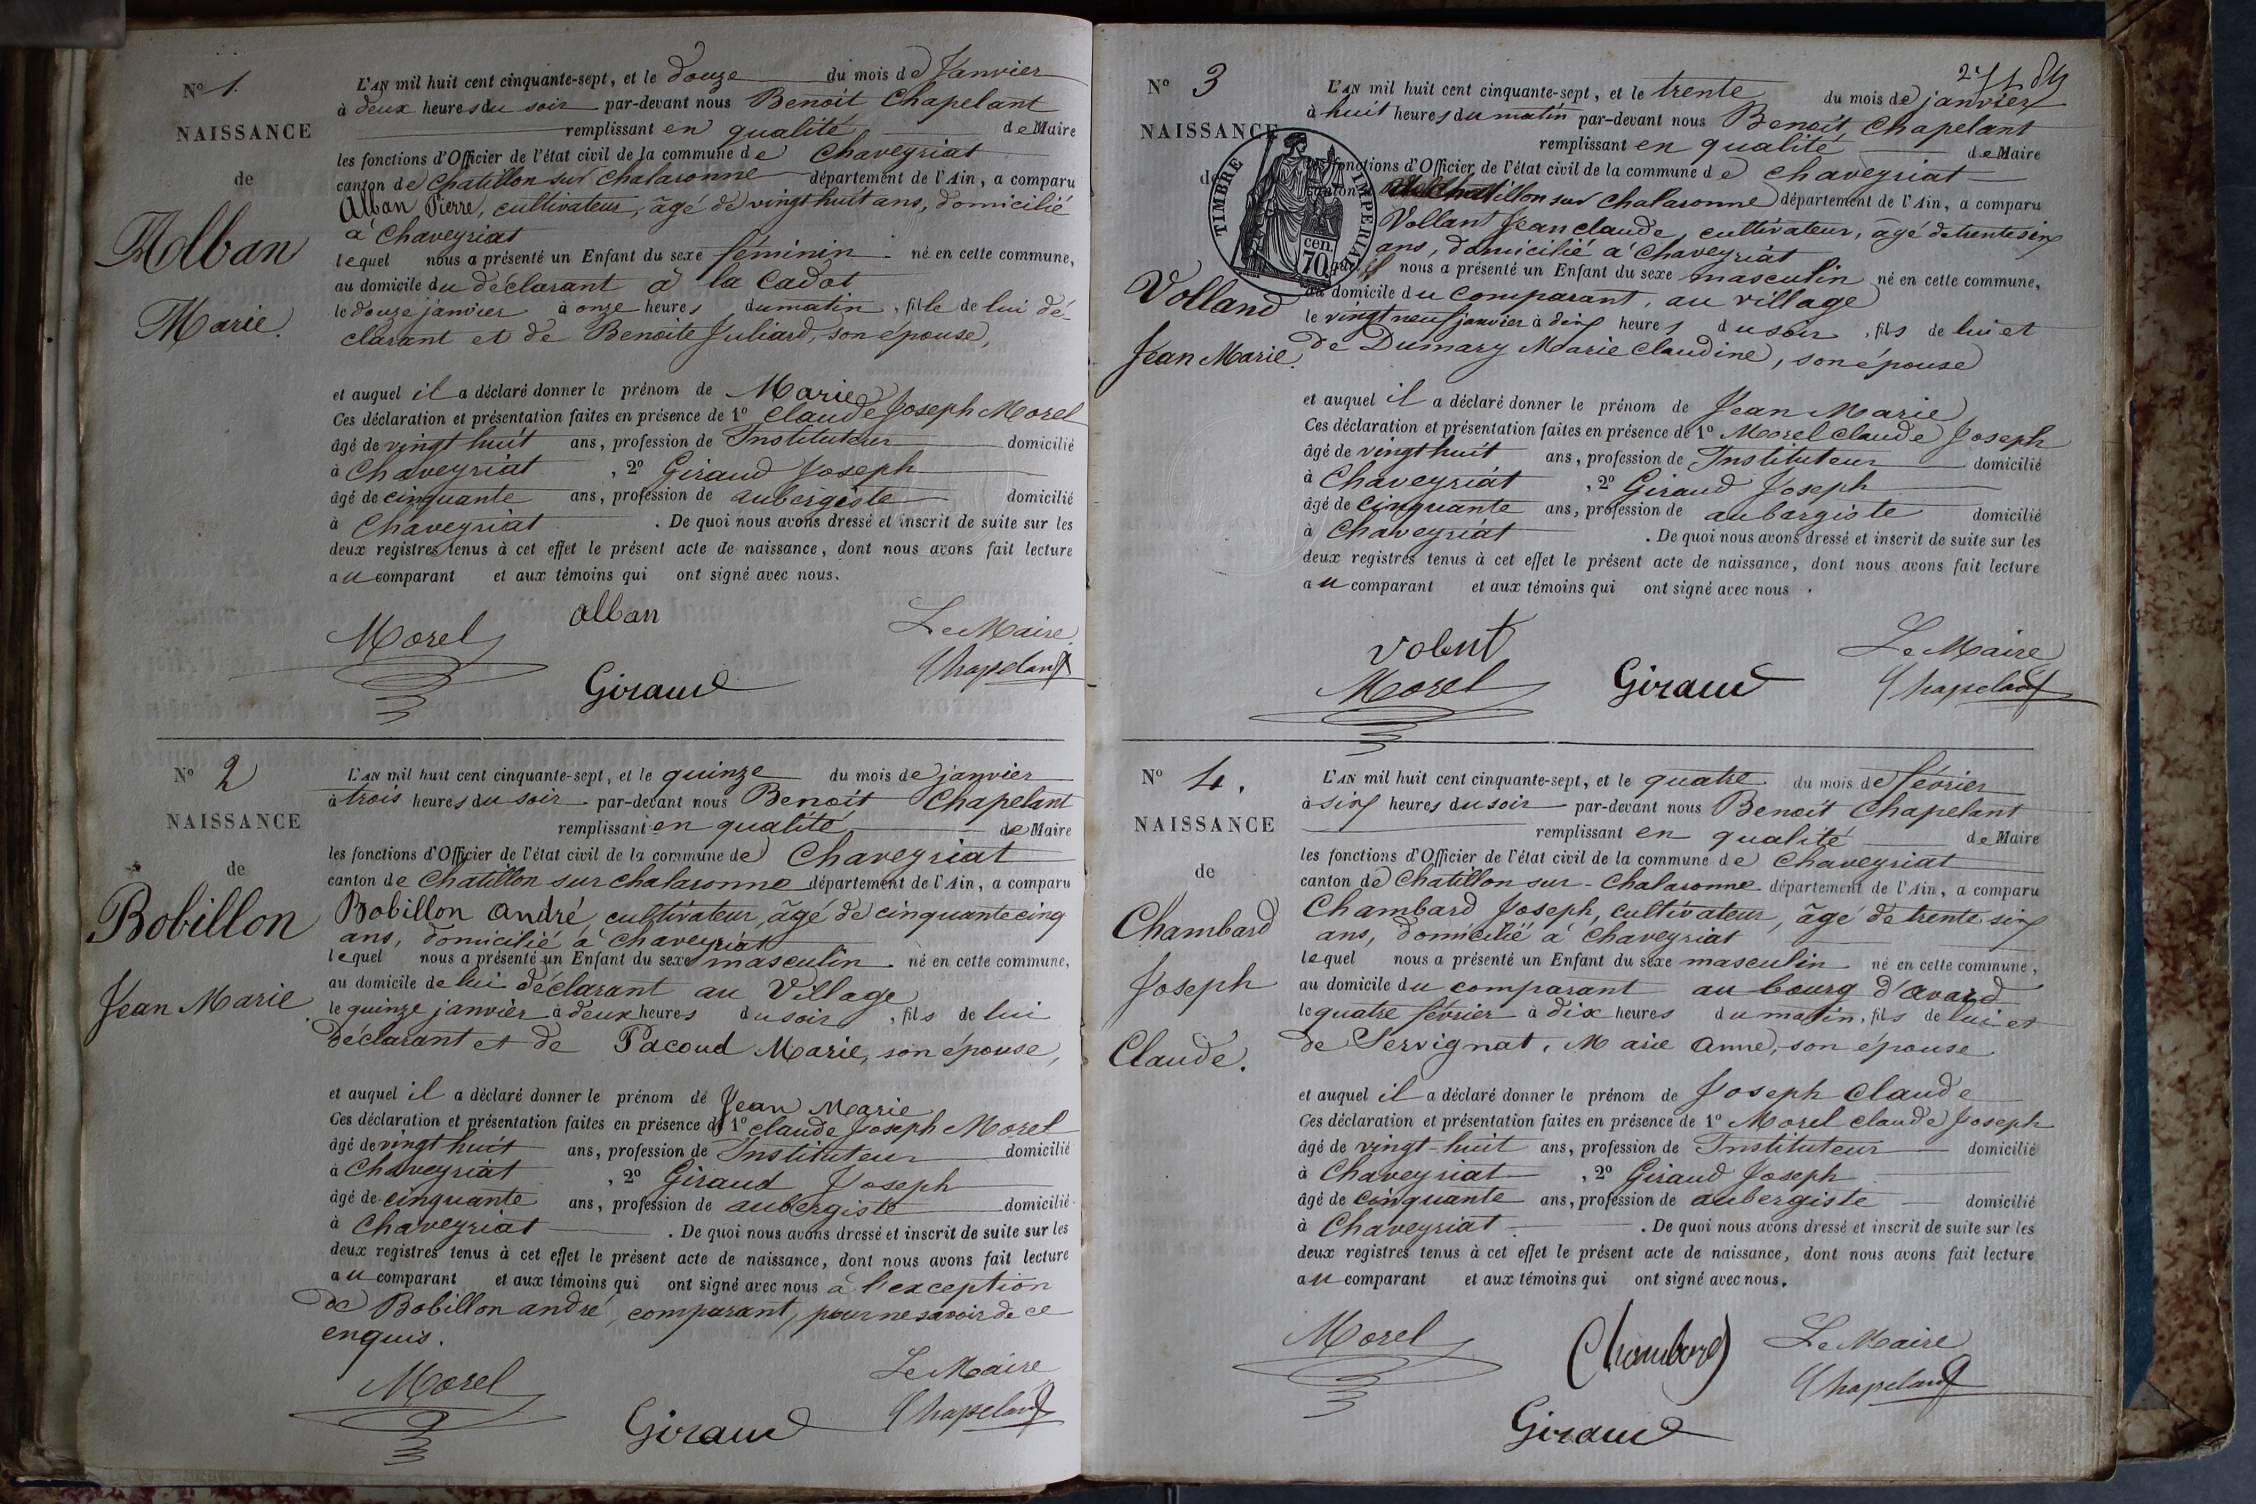 N° 1.
NAISSANCE
de
Alban
Marie.
L'AN mil huit cent cinquante-sept, et le douze du mois de Janvier
à deux heures du soir par-devant nous Benoit Chapelant
remplissant en qualité de Maire
les fonctions d'Officier de l'état civil de la commune de Chaveyriat
canton de Chatillon sur Chalaronne département de l'Ain, a comparu
Alban Pierre, cultivateur, âgé de vingt huit ans, domicilié
à Chaveyriat
lequel nous a présenté un Enfant du sexe féminin né en cette commune,
au domicile du déclarant à la Cadot
le douze janvier à onze heures du matin, fille de lui dé-
clarant et de Benoite Juliard, son épouse,
et auquel il a déclaré donner le prénom de Marie
Ces déclaration et présentation faites en présence de 1° Claude Joseph Morel
âgé de vingt huit ans, profession de Instituteur domicilié
à Chaveyriat, 2° Giraud Joseph
âgé de cinquante ans, profession de aubergiste domicilié
à Chaveyriat. De quoi nous avons dressé et inscrit de suite sur les
deux registres tenus à cet effet le présent acte de naissance, dont nous avons fait lecture
au comparant et aux témoins qui ont signé avec nous.
Alban
Le Maire
Morel
Chapelant
Giraud
N° 2
NAISSANCE
de
Bobillon
Jean Marie.
L'AN mil huit cent cinquante-sept, et le quinze du mois de janvier
à trois heures du soir par-devant nous Benoit Chapelant
remplissant en qualité de Maire
les fonctions d'Officier de l'état civil de la commune de Chaveyriat
canton de Chatillon sur chalaronne département de l'Ain, a comparu
Bobillon André, cultivateur, âgé de cinquante cinq
ans, domicilié à Chaveyriat
lequel nous a présenté un Enfant du sexe masculin né en cette commune,
au domicile de lui déclarant au Village
le quinze janvier à deux heures du soir, fils de lui
déclarant et de Pacoud Marie, son épouse,
et auquel il a déclaré donner le prénom de Jean Marie
Ces déclaration et présentation faites en présence de 1° Claude Joseph Morel
âgé de vingt huit ans, profession de Instituteur domicilié
à Chaveyriat, 2° Giraud Joseph
âgé de cinquante ans, profession de aubergiste domicilié
à Chaveyriat. De quoi nous avons dressé et inscrit de suite sur les
deux registres tenus à cet effet le présent acte de naissance, dont nous avons fait lecture
au comparant et aux témoins qui ont signé avec nous à l'exception
de Bobillon andré, comparant, pour ne savoir de ce
enquis.
Le Maire
Morel
Chapelant
Giraud
N° 3
NAISSANCE
de
Volland
Jean Marie.
TIMBRE IMPERIAL
cen.
70
L'AN mil huit cent cinquante-sept, et le trente du mois de janvier
à huit heures du matin par-devant nous Benoit Chapelant
remplissant en qualité de Maire
fonctions d'Officier de l'état civil de la commune de Chaveyriat
canton Chatillon sur Chalaronne département de l'Ain, a comparu
Vollant Jean claude, cultivateur, âgé de trente six
ans, domicilié à Chaveyriat
nous a présenté un Enfant du sexe masculin né en cette commune,
au domicile du comparant, au village
le vingt neuf janvier à dix heures du soir, fils de lui et
de Dumary Marie Claudine, son épouse
et auquel il a déclaré donner le prénom de Jean Marie
Ces déclaration et présentation faites en présence de 1° Morel Claude Joseph
âgé de vingt huit ans, profession de Instituteur domicilié
à Chaveyriat, 2° Giraud Joseph
âgé de cinquante ans, profession de aubergiste domicilié
à Chaveyriat. De quoi nous avons dressé et inscrit de suite sur les
deux registres tenus à cet effet le présent acte de naissance, dont nous avons fait lecture
au comparant et aux témoins qui ont signé avec nous.
Le Maire
Morel
Giraud
Chapelant
N° 4.
NAISSANCE
de
Chambard
Joseph
Claude.
L'AN mil huit cent cinquante-sept, et le quatre du mois de février
à six heures du soir par-devant nous Benoit Chapelant
remplissant en qualité de Maire
les fonctions d'Officier de l'état civil de la commune de Chaveyriat
canton de Chatillon sur-Chalaronne département de l'Ain, a comparu
Chambard Joseph, cultivateur, âgé de trente six
ans, domicilié à Chaveyriat
lequel nous a présenté un Enfant du sexe masculin né en cette commune,
au domicile du comparant au bourg d'avard
le quatre février à dix heures du matin, fils de lui et
de Servignat, Marie Anne, son épouse
et auquel il a déclaré donner le prénom de Joseph Claude
Ces déclaration et présentation faites en présence de 1° Morel claude Joseph
âgé de vingt-huit ans, profession de Instituteur domicilié
à Chaveyriat, 2° Giraud Joseph
âgé de cinquante ans, profession de aubergiste domicilié
à Chaveyriat. De quoi nous avons dressé et inscrit de suite sur les
deux registres tenus à cet effet le présent acte de naissance, dont nous avons fait lecture
au comparant et aux témoins qui ont signé avec nous.
Morel
Chambard
Le Maire
Chapelant
Giraud